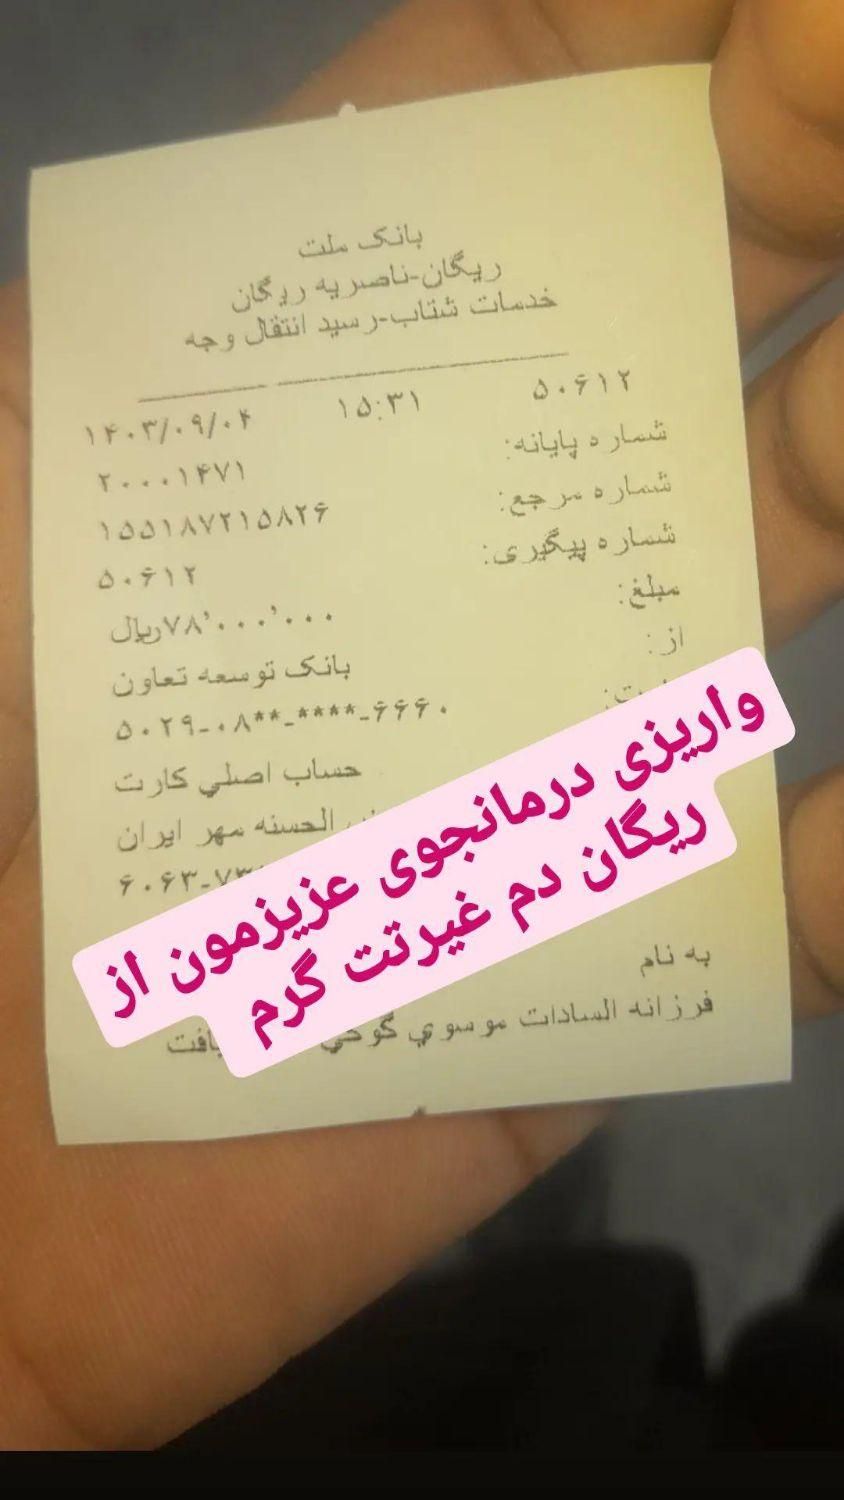 بانک ملت
ریگان-ناصریه ریگان
خدمات شتاب-رسید انتقال وجه
۵۰۶۱۲ ۱۵:۳۱ ۱۴۰۳/۰۹/۰۴
شماره پایانه: ۲۰۰۰۱۴۷۱
شماره مرجع: ۱۵۵۱۸۷۲۱۵۸۲۶
شماره پیگیری: ۵۰۶۱۲
مبلغ: ۷۸٬۰۰۰٬۰۰۰ریال
از: بانک توسعه تعاون
۵۰۲۹-۰۸**-****-۶۶۶۰
حساب اصلي کارت
الحسنه مهر ایران
۶۰۶۳-۷۳
واریزی درمانجوی عزیزمون از
ریگان دم غیرتت گرم
به نام
فرزانه السادات موسوي گوکي